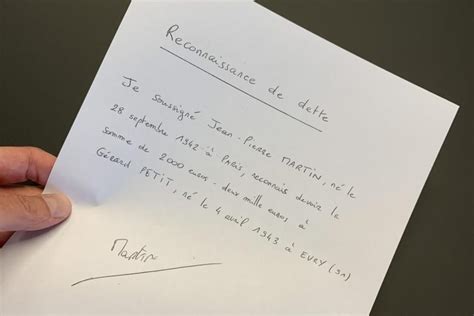 Reconnaissance de dette
Je soussigné Jean-Pierre MARTIN, né le
28 septembre 1942 à PARIS, reconnais devoir la
somme de 2000 euros - deux mille euros à
Gérard PETIT, né le 4 avril 1943 à EVRY (91)
Martin